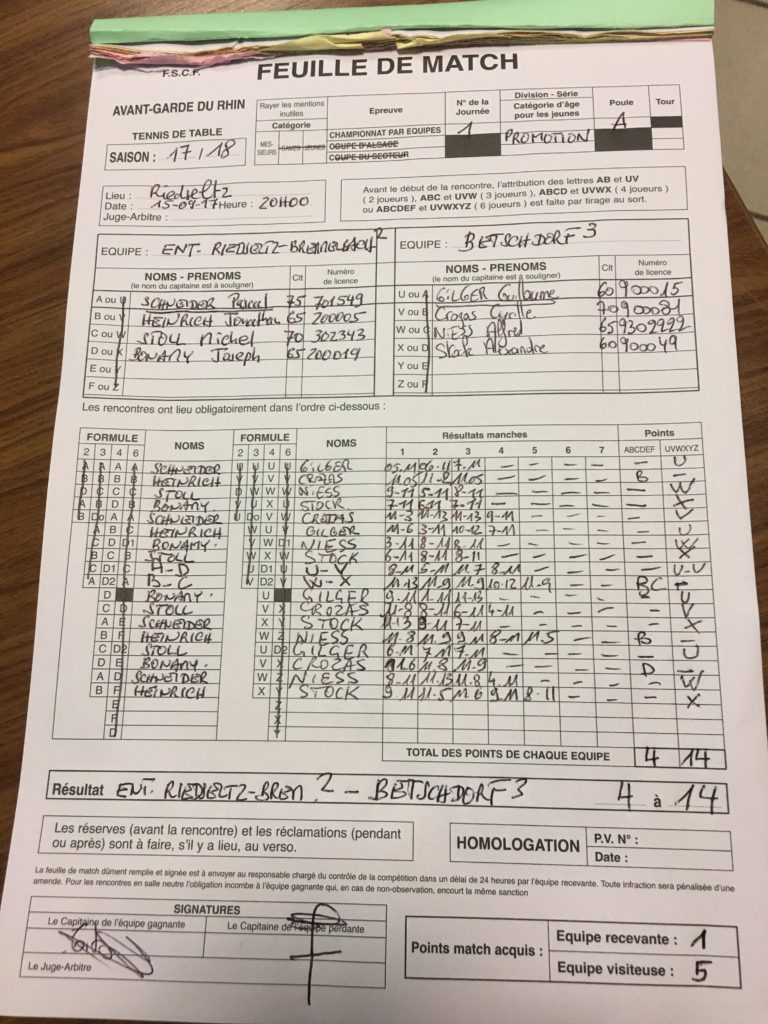 F.S.C.F.
FEUILLE DE MATCH
AVANT-GARDE DU RHIN
TENNIS DE TABLE
SAISON : 17/18
Rayer les mentions inutiles
Catégorie
MES-SIEURS DAMES JEUNES
Epreuve
CHAMPIONNAT PAR EQUIPES
COUPE D'ALSACE
COUPE DU SECTEUR
N° de la Journée
1
Division - Série
Catégorie d'âge pour les jeunes
PROMOTION
Poule
A
Tour
Lieu : Riedseltz
Date : 15-09-17 Heure : 20H00
Juge-Arbitre :
Avant le début de la rencontre, l'attribution des lettres AB et UV
( 2 joueurs ), ABC et UVW ( 3 joueurs ), ABCD et UVWX ( 4 joueurs )
ou ABCDEF et UVWXYZ ( 6 joueurs ) est faite par tirage au sort.
EQUIPE : ENT. RIEDSELTZ-BREMMELBACH 2
EQUIPE : BETSCHDORF 3
NOMS - PRENOMS (le nom du capitaine est à souligner) Clt Numéro de licence
NOMS - PRENOMS (le nom du capitaine est à souligner) Clt Numéro de licence
A ou U SCHNEIDER Pascal 75 701549
U ou A GILGER Guillaume 60 900015
B ou V HEINRICH Jonathan 65 200005
V ou B Crozas Cyrille 70 900081
C ou W STOLL Michel 70 302343
W ou C NIESS Alfred 65 9302922
D ou X BONAMY Joseph 65 200019
X ou D Stock Alexandre 60 900049
E ou Y
Y ou E
F ou Z
Z ou F
Les rencontres ont lieu obligatoirement dans l'ordre ci-dessous :
FORMULE NOMS FORMULE NOMS Résultats manches Points
2 3 4 6 2 3 4 6 1 2 3 4 5 6 7 ABCDEF UVWXYZ
SCHNEIDER GILGER 05-11 06-11 7-11 U
HEINRICH CROZAS B
STOLL NIESS 9-11 5-11 8-11 W
BONAMY STOCK 7-11 6-11 7-11 X
SCHNEIDER CROZAS 11-3 11-13 11-13 9-11 V
HEINRICH GILGER 11-6 3-11 10-12 7-11 U
BONAMY NIESS 3-11 8-11 8-11 W
STOLL STOCK 6-11 8-11 8-11 X
A-D U-V 8-11 5-11 11-7 8-11 U-V
B-C W-X 11-13 11-9 11-9 10-12 11-9 BC
BONAMY GILGER 9-11 1-11 11-13 U
STOLL CROZAS 11-8 8-11 6-11 4-11 V
SCHNEIDER STOCK 11-13 7-11 X
HEINRICH NIESS 11-8 11-9 9-11 8-11 11-5 B
STOLL GILGER 6-11 7-11 7-11 U
BONAMY CROZAS 11-6 11-8 11-9 D
SCHNEIDER NIESS 8-11 11-13 11-8 4-11 W
HEINRICH STOCK 9-11 11-5 11-6 9-11 8-11 X
TOTAL DES POINTS DE CHAQUE EQUIPE 4 14
Résultat ENT. RIEDSELTZ-BREM. 2 - BETSCHDORF 3 4 à 14
Les réserves (avant la rencontre) et les réclamations (pendant
ou après) sont à faire, s'il y a lieu, au verso.
HOMOLOGATION
P.V. N° :
Date :
La feuille de match dûment remplie et signée est à envoyer au responsable chargé du contrôle de la compétition dans un délai de 24 heures par l'équipe recevante. Toute infraction sera pénalisée d'une
amende. Pour les rencontres en salle neutre l'obligation incombe à l'équipe gagnante qui, en cas de non-observation, encourt la même sanction
SIGNATURES
Le Capitaine de l'équipe gagnante
Le Capitaine de l'équipe perdante
Le Juge-Arbitre
Points match acquis :
Equipe recevante : 1
Equipe visiteuse : 5